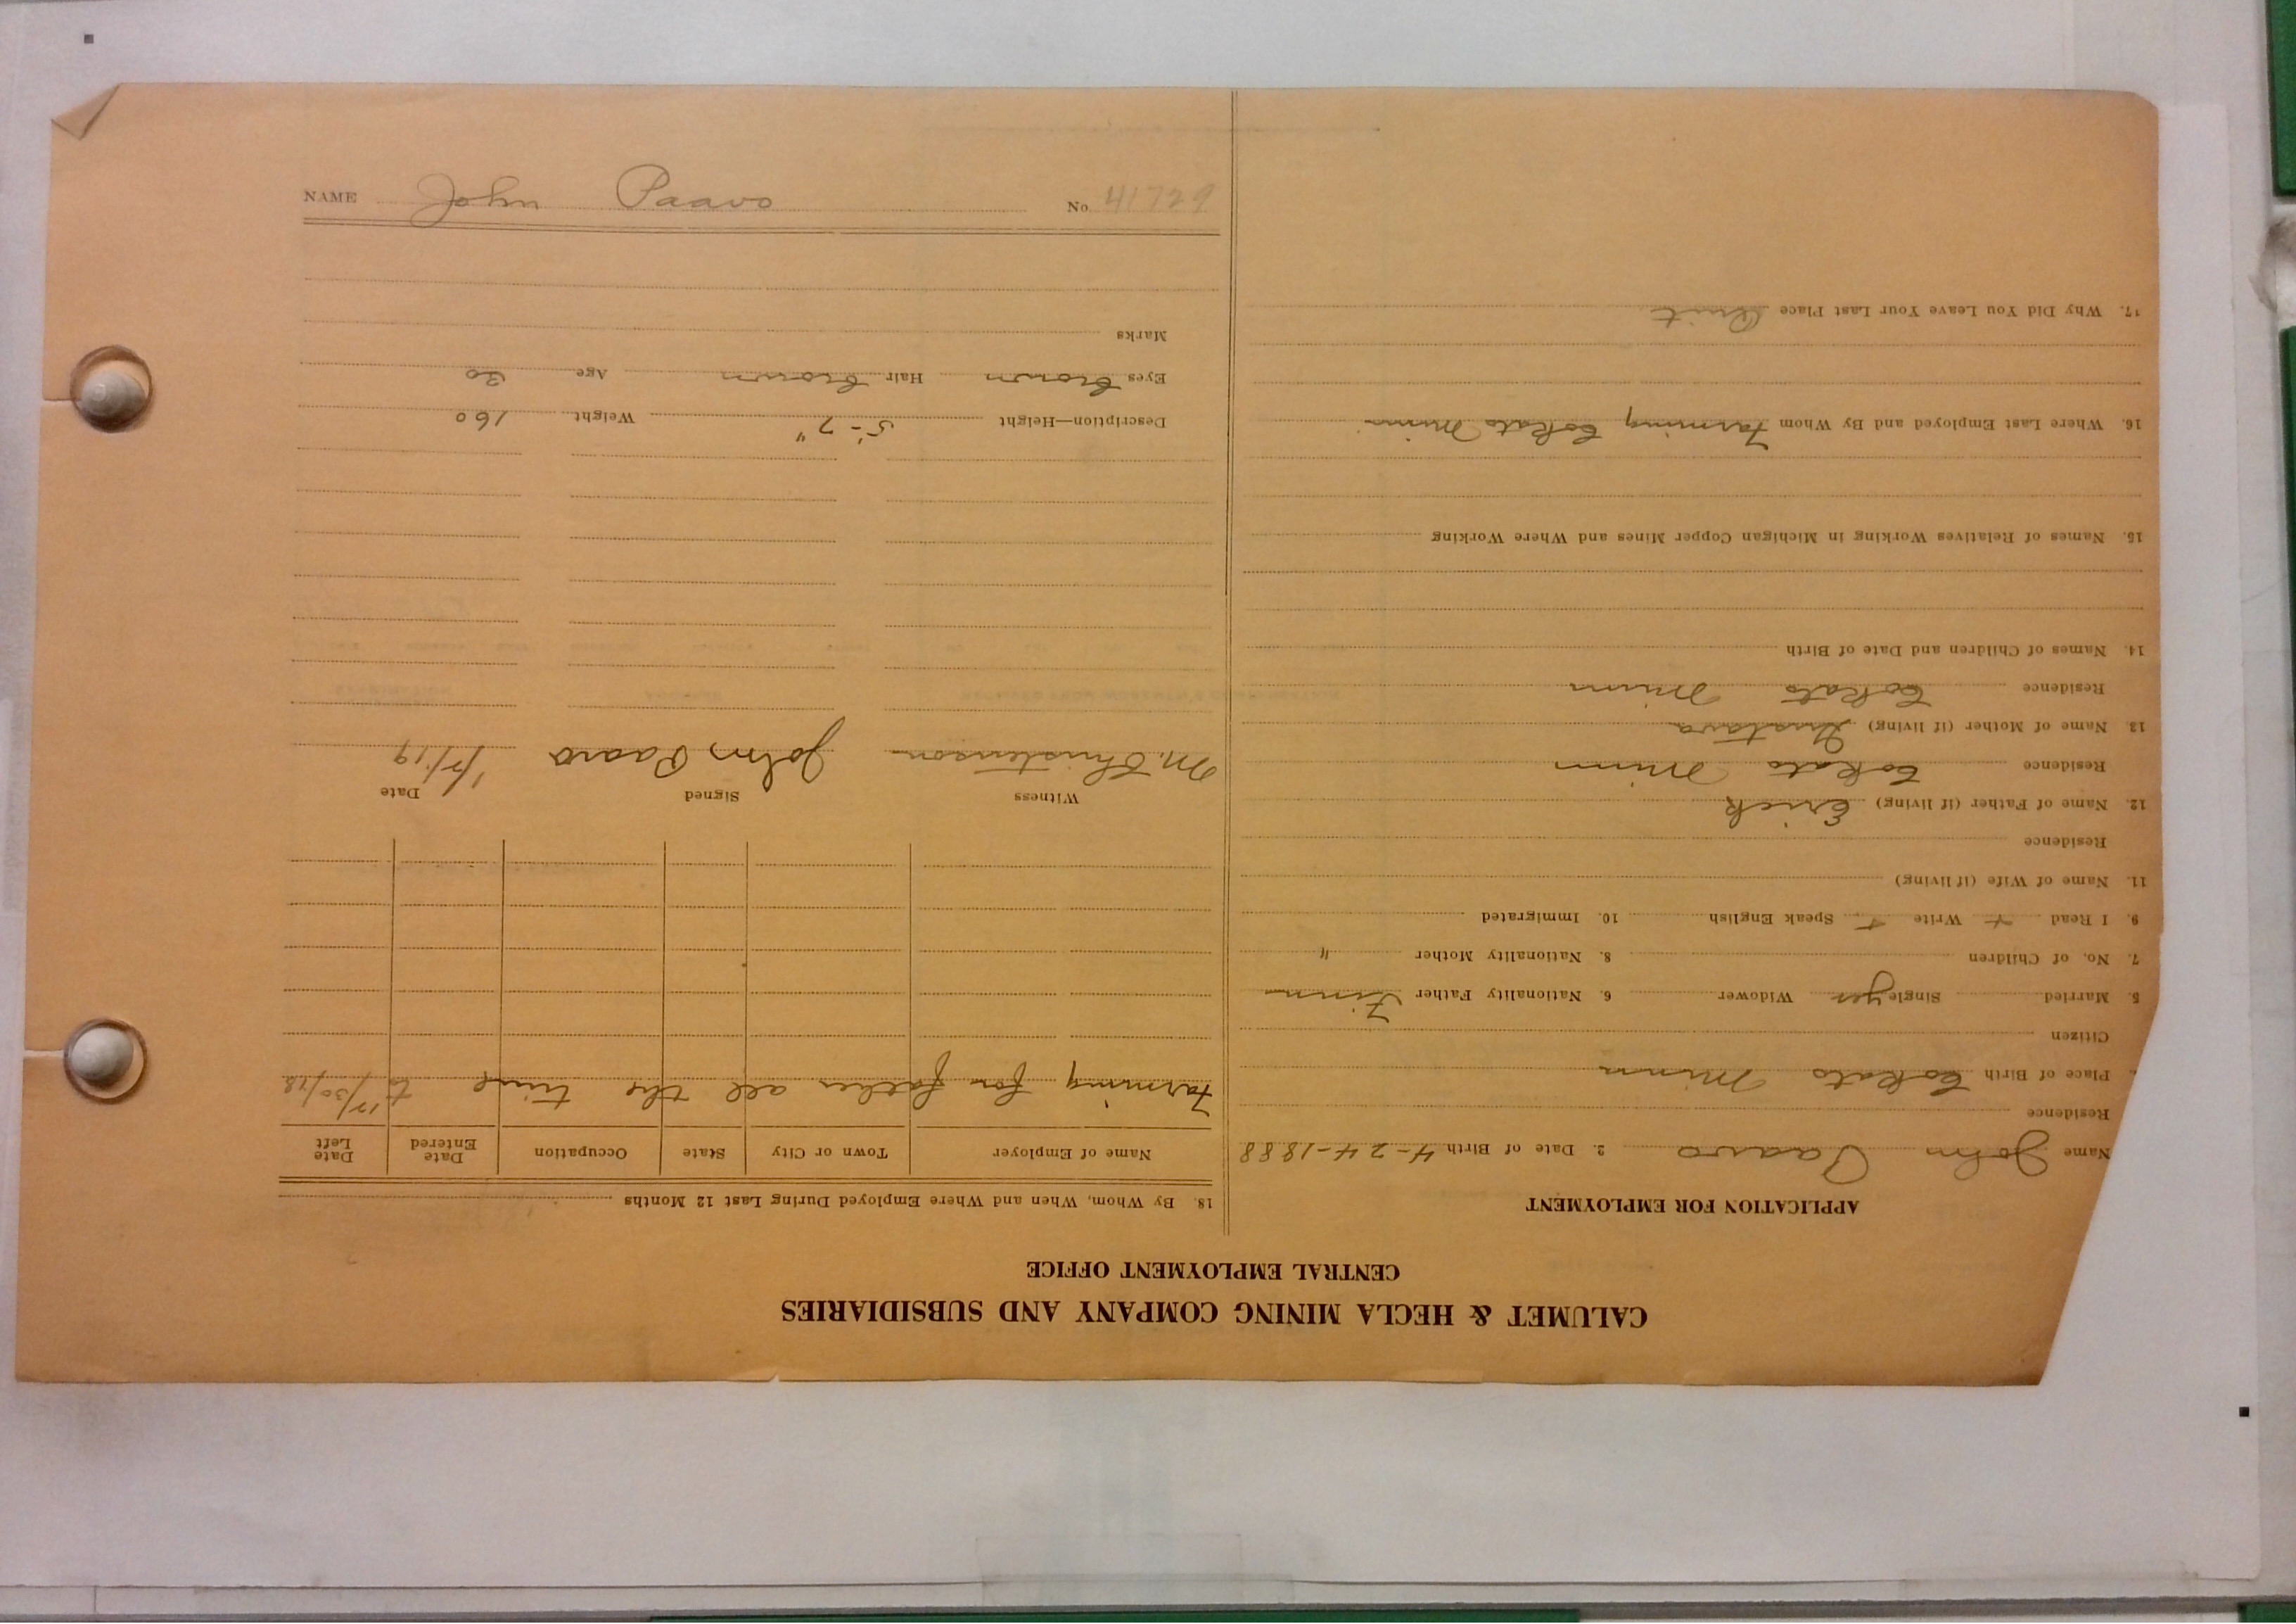 CALUMET & HECLA MINING COMPANY AND SUBSIDIARIES
CENTRAL EMPLOYMENT OFFICE
APPLICATION FOR EMPLOYMENT
Name John Paavo 2. Date of Birth 4-24-1888
Residence
Place of Birth Cokato Minn
Citizen
5. Married Single yes Widower 6. Nationality Father Finn
7. No. of Children 8. Nationality Mother "
9. I Read + Write + Speak English 10. Immigrated
11. Name of Wife (if living)
Residence
12. Name of Father (if living) Erick
Residence Cokato Minn
13. Name of Mother (if living) Gustava
Residence Cokato Minn
14. Names of Children and Date of Birth
15. Names of Relatives Working in Michigan Copper Mines and Where Working
16. Where Last Employed and By Whom Farming Cokato Minn
17. Why Did You Leave Your Last Place Quit
18. By Whom, When and Where Employed During Last 12 Months
Name of Employer Town or City State Occupation Date Entered Date Left
Farming for father all the time to 12/30/18
Witness Signed Date
M. Christenson John Paavo 1/7/19
Description—Height 5'-7" Weight 160
Eyes brown Hair brown Age 30
Marks
NAME John Paavo No. 41729